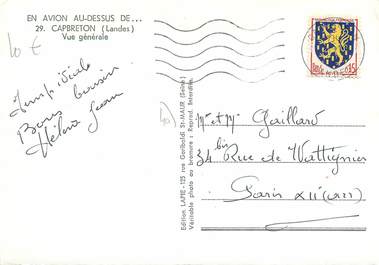 EN AVION AU-DESSUS DE...
29. CAPBRETON (Landes)
Vue générale
10 €
Bons baisers
Hélène Jean
Edition LAPIE - 125 rue Garibaldi ST-MAUR (Seine)
Véritable photo au bromure : Reprod. Interdite.
0,15
Mr et Mme Gaillard
34 bis Rue de Wattignies
Paris XII (arr)